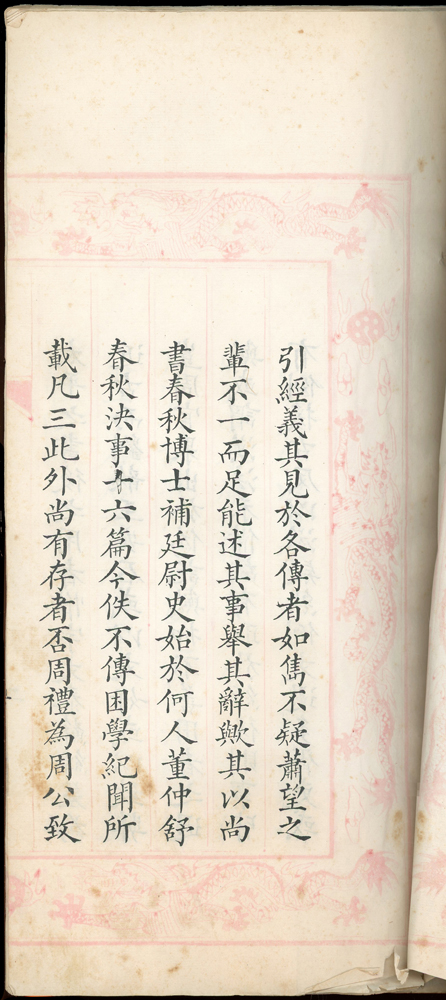 引經義其見於各傳者如雋不疑蕭望之
輩不一而足能述其事舉其辭歟其以尚
書春秋博士補廷尉史始於何人董仲舒
春秋決事十六篇今佚不傳困學紀聞所
載凡三此外尚有存者否周禮為周公致